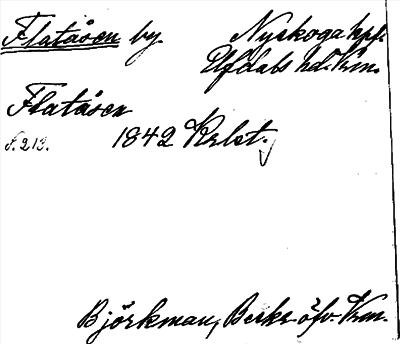 Flatåsen by. Nyskoga kpf.
Älfdals hd. Vrm.
Flatåsen
s. 213. 1842 Krlst.
Björkman, Beskr. öfv. Vrm.